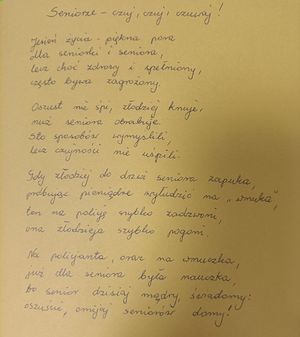 Seniorze - czuj, czuj, czuwaj!
Jesień życia - piękna pora
dla seniorki i seniora,
lecz choć zdrowy i spełniony,
często bywa zagrożony.
Oszust nie śpi, złodziej knuje,
nuż seniora obrabuje.
Sto sposobów wymyślili,
lecz czujności nie uśpili.
Gdy złodziej do drzwi seniora zapuka,
próbując pieniądze wyłudzić na „wnuka”,
ten na policję szybko zadzwoni,
ona złodzieja szybko pogoni.
Na policjanta, oraz na wnuczka,
już dla seniora była nauczka,
bo senior dzisiaj mądry, świadomy:
oszuście, omijaj seniorów domy!